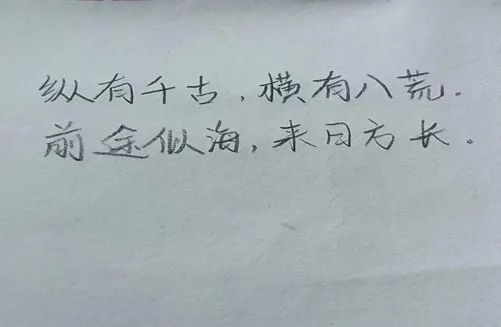 纵有千古，横有八荒.
前途似海，来日方长.